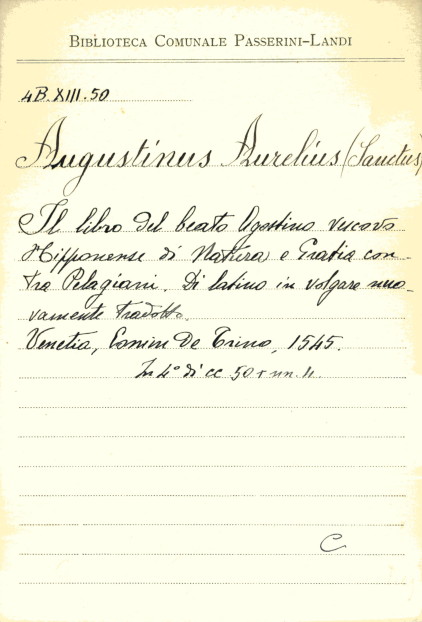 BIBLIOTECA COMUNALE PASSERINI-LANDI
4B.XIII.50
Augustinus Aurelius (Sanctus)
Il libro del beato Agostino vescovo
Hipponense di Natura e Gratia con-
tra Pelagiani. Di latino in volgare nuo-
vamente tradotto.
Venetia, Comin De Trino, 1545.
In 4° di cc 50 + nn.
C